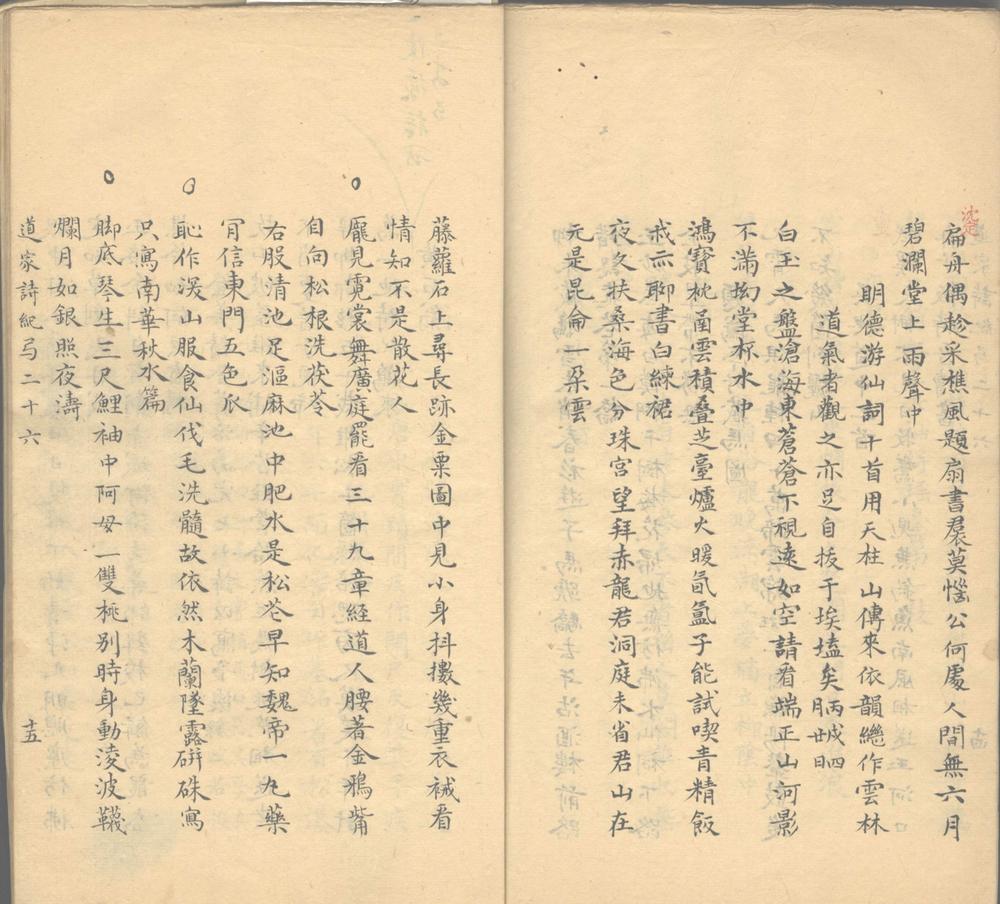 扁舟偶趁采樵風題扇書裙莫惱公何處人間無六月
碧瀾堂上雨聲中
明德游仙詞十首用天柱山傳來依韻繼作雲林
道氣者觀之亦足自拔于埃壒矣昞
白玉之盤滄海東蒼蒼下視遠如空請看端正山河影
不滿坳堂杯水中
鴻寶枕函雲積疊芝臺爐火暖氤氳子能試喫青精飯
我亦聊書白練裙
夜久扶桑海色分珠宮望拜赤龍君洞庭未省君山在
元是昆侖一朵雲
藤蘿石上尋長跡金粟圖中見小身抖擻幾重衣祴看
情知不是散花人
厭見霓裳舞廣庭罷看三十九章經道人腰著金鴉觜
自向松根洗茯苓
右股清池足漚麻池中肥水是松花早知魏帝一丸藥
肎信東門五色瓜
恥作湲山服食仙伐毛洗髓故依然木蘭墜露研硃寫
只寫南華秋水篇
脚底琴生三尺鯉袖中阿母一雙桃別時身動淩波韈
爛月如銀照夜濤
道家詩紀弓二十六
十五